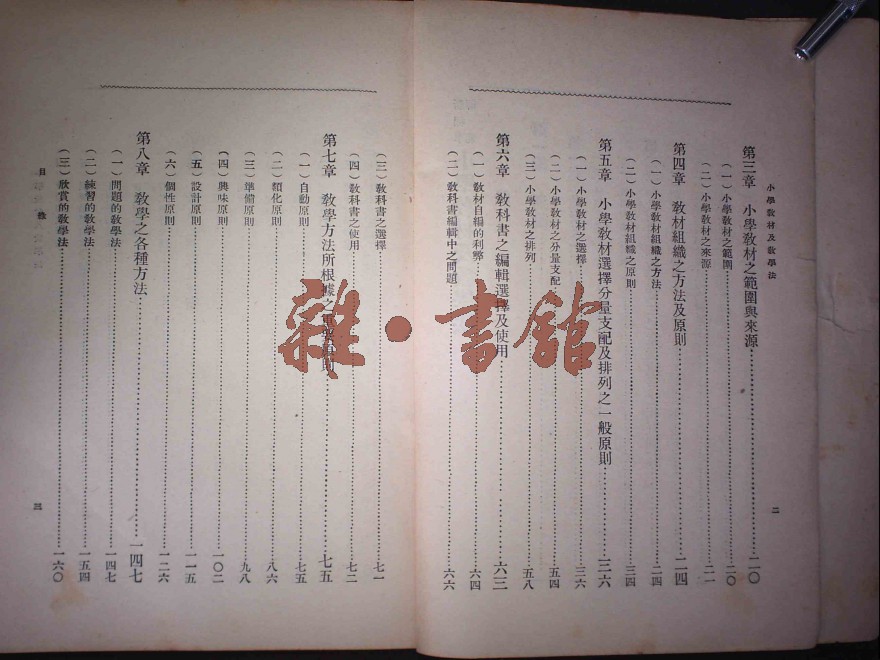 小學教材及教學法
二
第三章　小學教材之範圍與來源……二〇
（一）小學教材之範圍……二〇
（二）小學教材之來源……二一
第四章　教材組織之方法及原則……二四
（一）小學教材組織之方法……二四
（二）小學教材組織之原則……三四
第五章　小學教材選擇分量支配及排列之一般原則……三六
（一）小學教材之選擇……三六
（二）小學教材之分量支配……五四
（三）小學教材之排列……五八
第六章　教科書之編輯選擇及使用……六三
（一）教材自編的利弊……六四
（二）教科書編輯中之問題……六六
（三）教科書之選擇……七一
（四）教科書之使用……七二
第七章　教學方法所根據之……原則……七五
（一）自動原則……七五
（二）類化原則……八六
（三）準備原則……九八
（四）興味原則……一〇二
（五）設計原則……一一五
（六）個性原則……一二六
第八章　教學之各種方法……一四七
（一）問題的教學法……一四七
（二）練習的教學法……一五四
（三）欣賞的教學法……一六〇
目錄
三
雜·書館